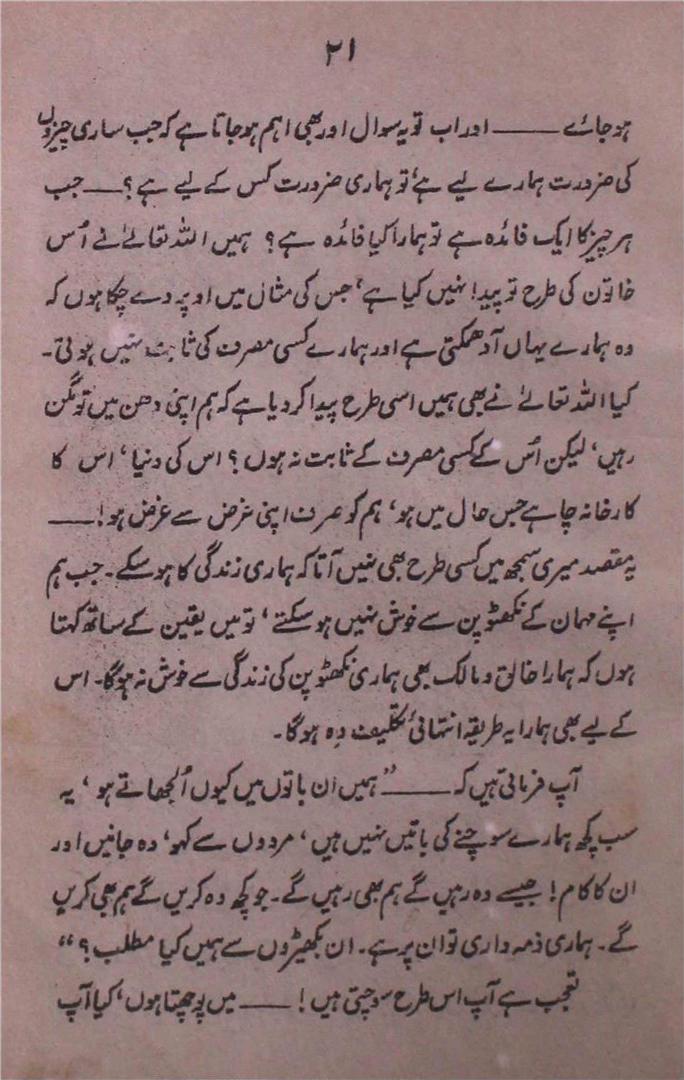 ۲۱
ہو جائے ـــــــ اور اب تو یہ سوال اور بھی اہم ہو جاتا ہے کہ جب ساری چیزوں
کی ضرورت ہمارے لیے ہے، تو ہماری ضرورت کس کے لیے ہے؟ ـــــ جب
ہر چیز کا ایک فائدہ ہے تو ہمارا کیا فائدہ ہے؟ ہمیں اللہ تعالےٰ نے اُس
خاتون کی طرح تو پیدا نہیں کیا ہے، جس کی مثال میں اوپر دے چکا ہوں کہ
وہ ہمارے یہاں آدھمکتی ہے اور ہمارے کسی مصرف کی ثابت نہیں ہوتی۔
کیا اللہ تعالےٰ نے بھی ہمیں اسی طرح پیدا کر دیا ہے کہ ہم اپنی دھن میں تو مگن
رہیں، لیکن اُس کے کسی مصرف کے ثابت نہ ہوں؟ اس کی دنیا، اس کا
کارخانہ چاہے جس حال میں ہو، ہم کو صرف اپنی غرض سے غرض ہو! ـــــ
یہ مقصد میری سمجھ میں کسی طرح بھی نہیں آتا کہ ہماری زندگی کا ہو سکے۔ جب ہم
اپنے مہمان کے نکھٹو پن سے خوش نہیں ہو سکتے، تو میں یقین کے ساتھ کہتا
ہوں کہ ہمارا خالق و مالک بھی ہماری نکھٹو پن کی زندگی سے خوش نہ ہوگا۔ اس
کے لیے بھی ہمارا یہ طریقہ انتہائی تکلیف دہ ہوگا۔
آپ فرماتی ہیں کہ ـــــــ "ہمیں ان باتوں میں کیوں اُلجھاتے ہو، یہ
سب کچھ ہمارے سوچنے کی باتیں نہیں ہیں، مردوں سے کہو، وہ جانیں اور
ان کا کام! جیسے وہ رہیں گے ہم بھی رہیں گے۔ جو کچھ وہ کریں گے ہم بھی کریں
گے۔ ہماری ذمہ داری تو ان پر ہے۔ ان بکھیڑوں سے ہمیں کیا مطلب؟"
تعجب ہے آپ اس طرح سوچتی ہیں! ـــــ میں پوچھتا ہوں، کیا آپ